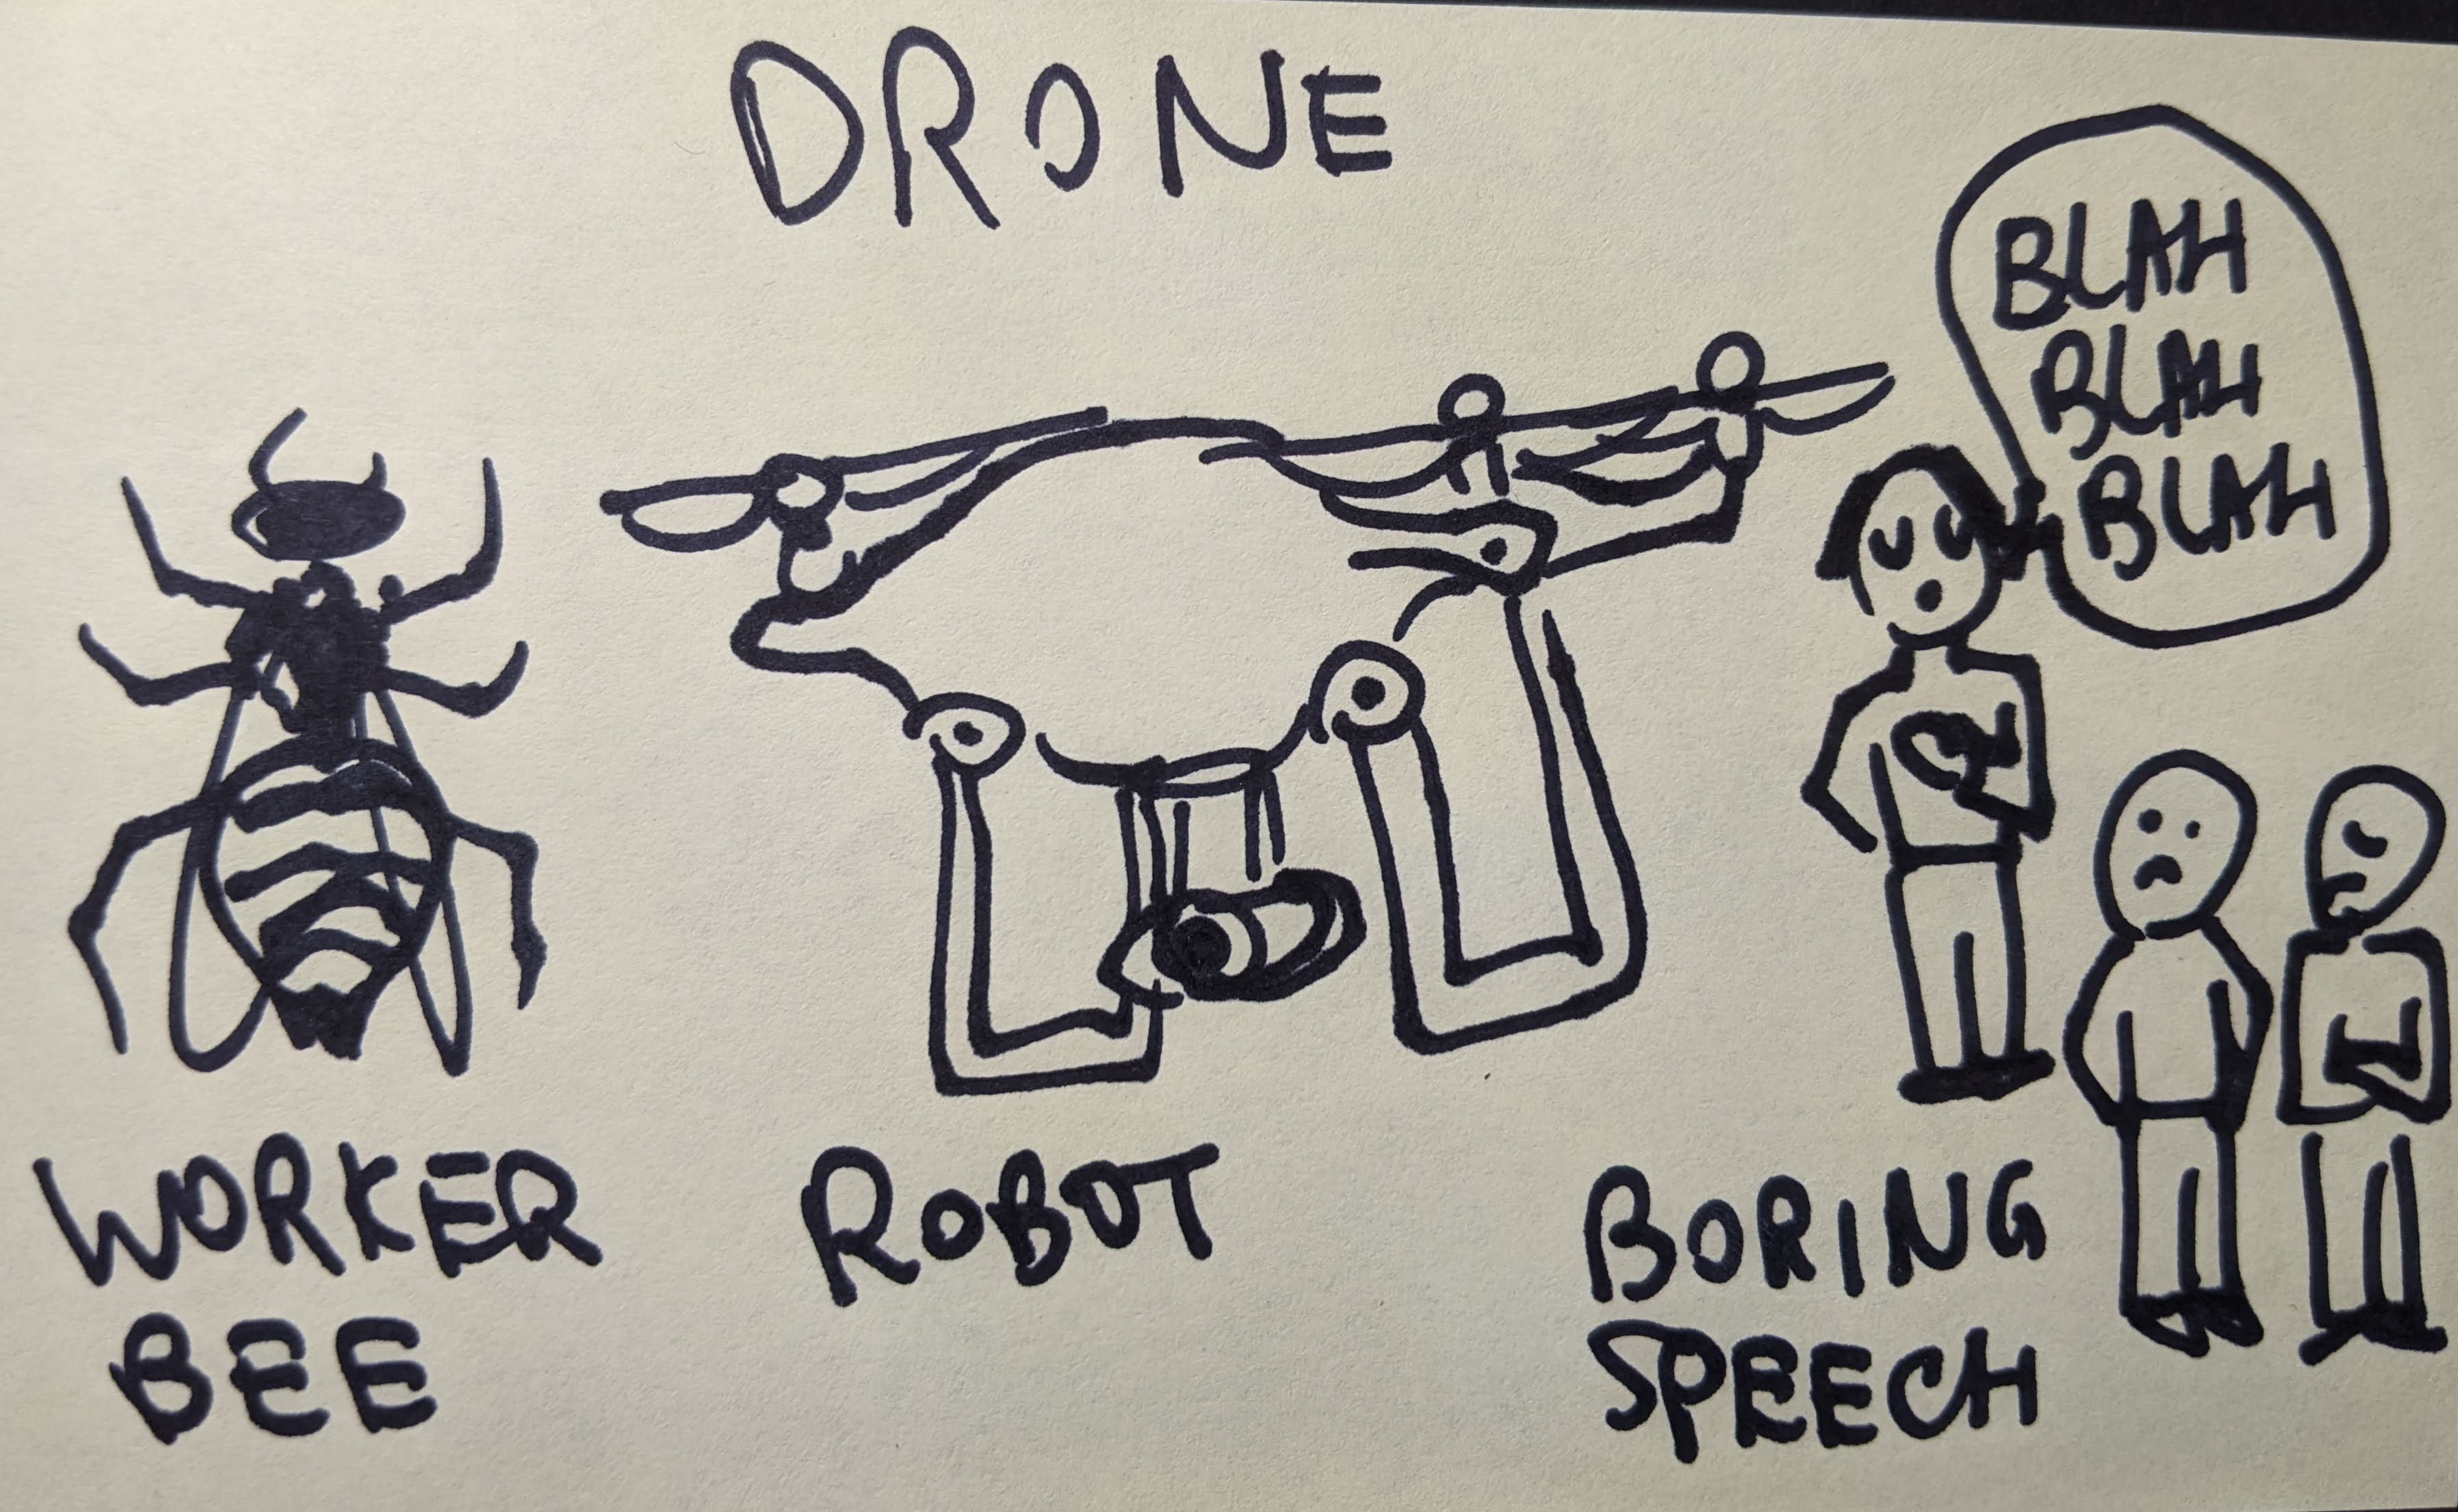 DRONE
BLAH
BLAH
BLAH
WORKER
BEE
ROBOT
BORING
SPEECH